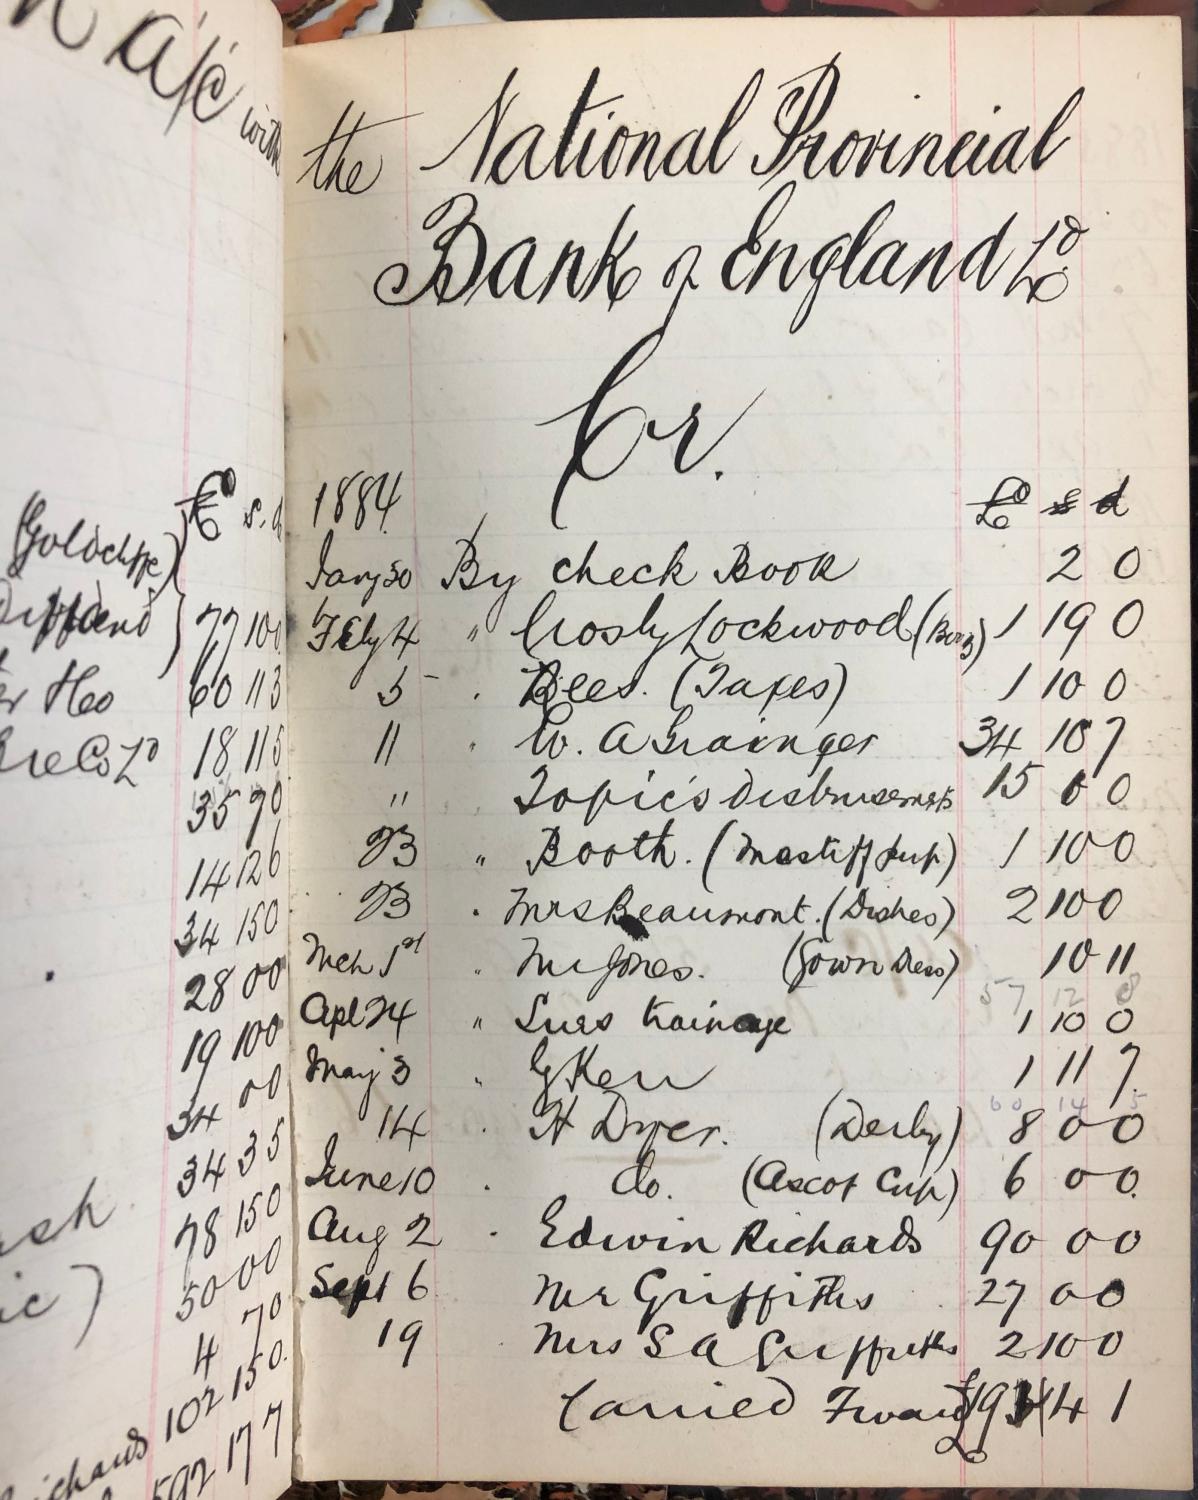 a/c with
(Goldcliffe)
£ s. d
77 10 0
60 11 3
18 11 5
35 7 0
14 12 6
34 15 0
28 0 0
19 10 0
34 0 0
34 3 5
78 15 0
50 0 0
4 7 0
102 15 0
592 17 7
the National Provincial
Bank of England Ld
Cr.
1884 £ s d
Jany 30 By check Book 2 0
Feby 4 " Crosby Lockwood 1 19 0
5 " Rees. (Taxes) 1 10 0
11 " W. A Grainger 34 10 7
" Topic's disbursements 15 0 0
23 " Booth. (Mastiff pup) 1 10 0
23 " Mrs Beaumont. (Dishes) 2 10 0
Mch 1st " Mr Jones. (Gown Dess) 10 11
57 12 8
Apl 24 " trainage 1 10 0
May 3 " G Kerr 1 11 7
60 14 5
14 " H Dyer. (Derby) 8 0 0
June 10 " do. (Ascot Cup) 6 0 0
Aug 2 " Edwin Richards 90 0 0
Sept 6 Mr Griffiths 27 0 0
19 Mrs S A Griffiths 2 10 0
Carried Forward 4 1